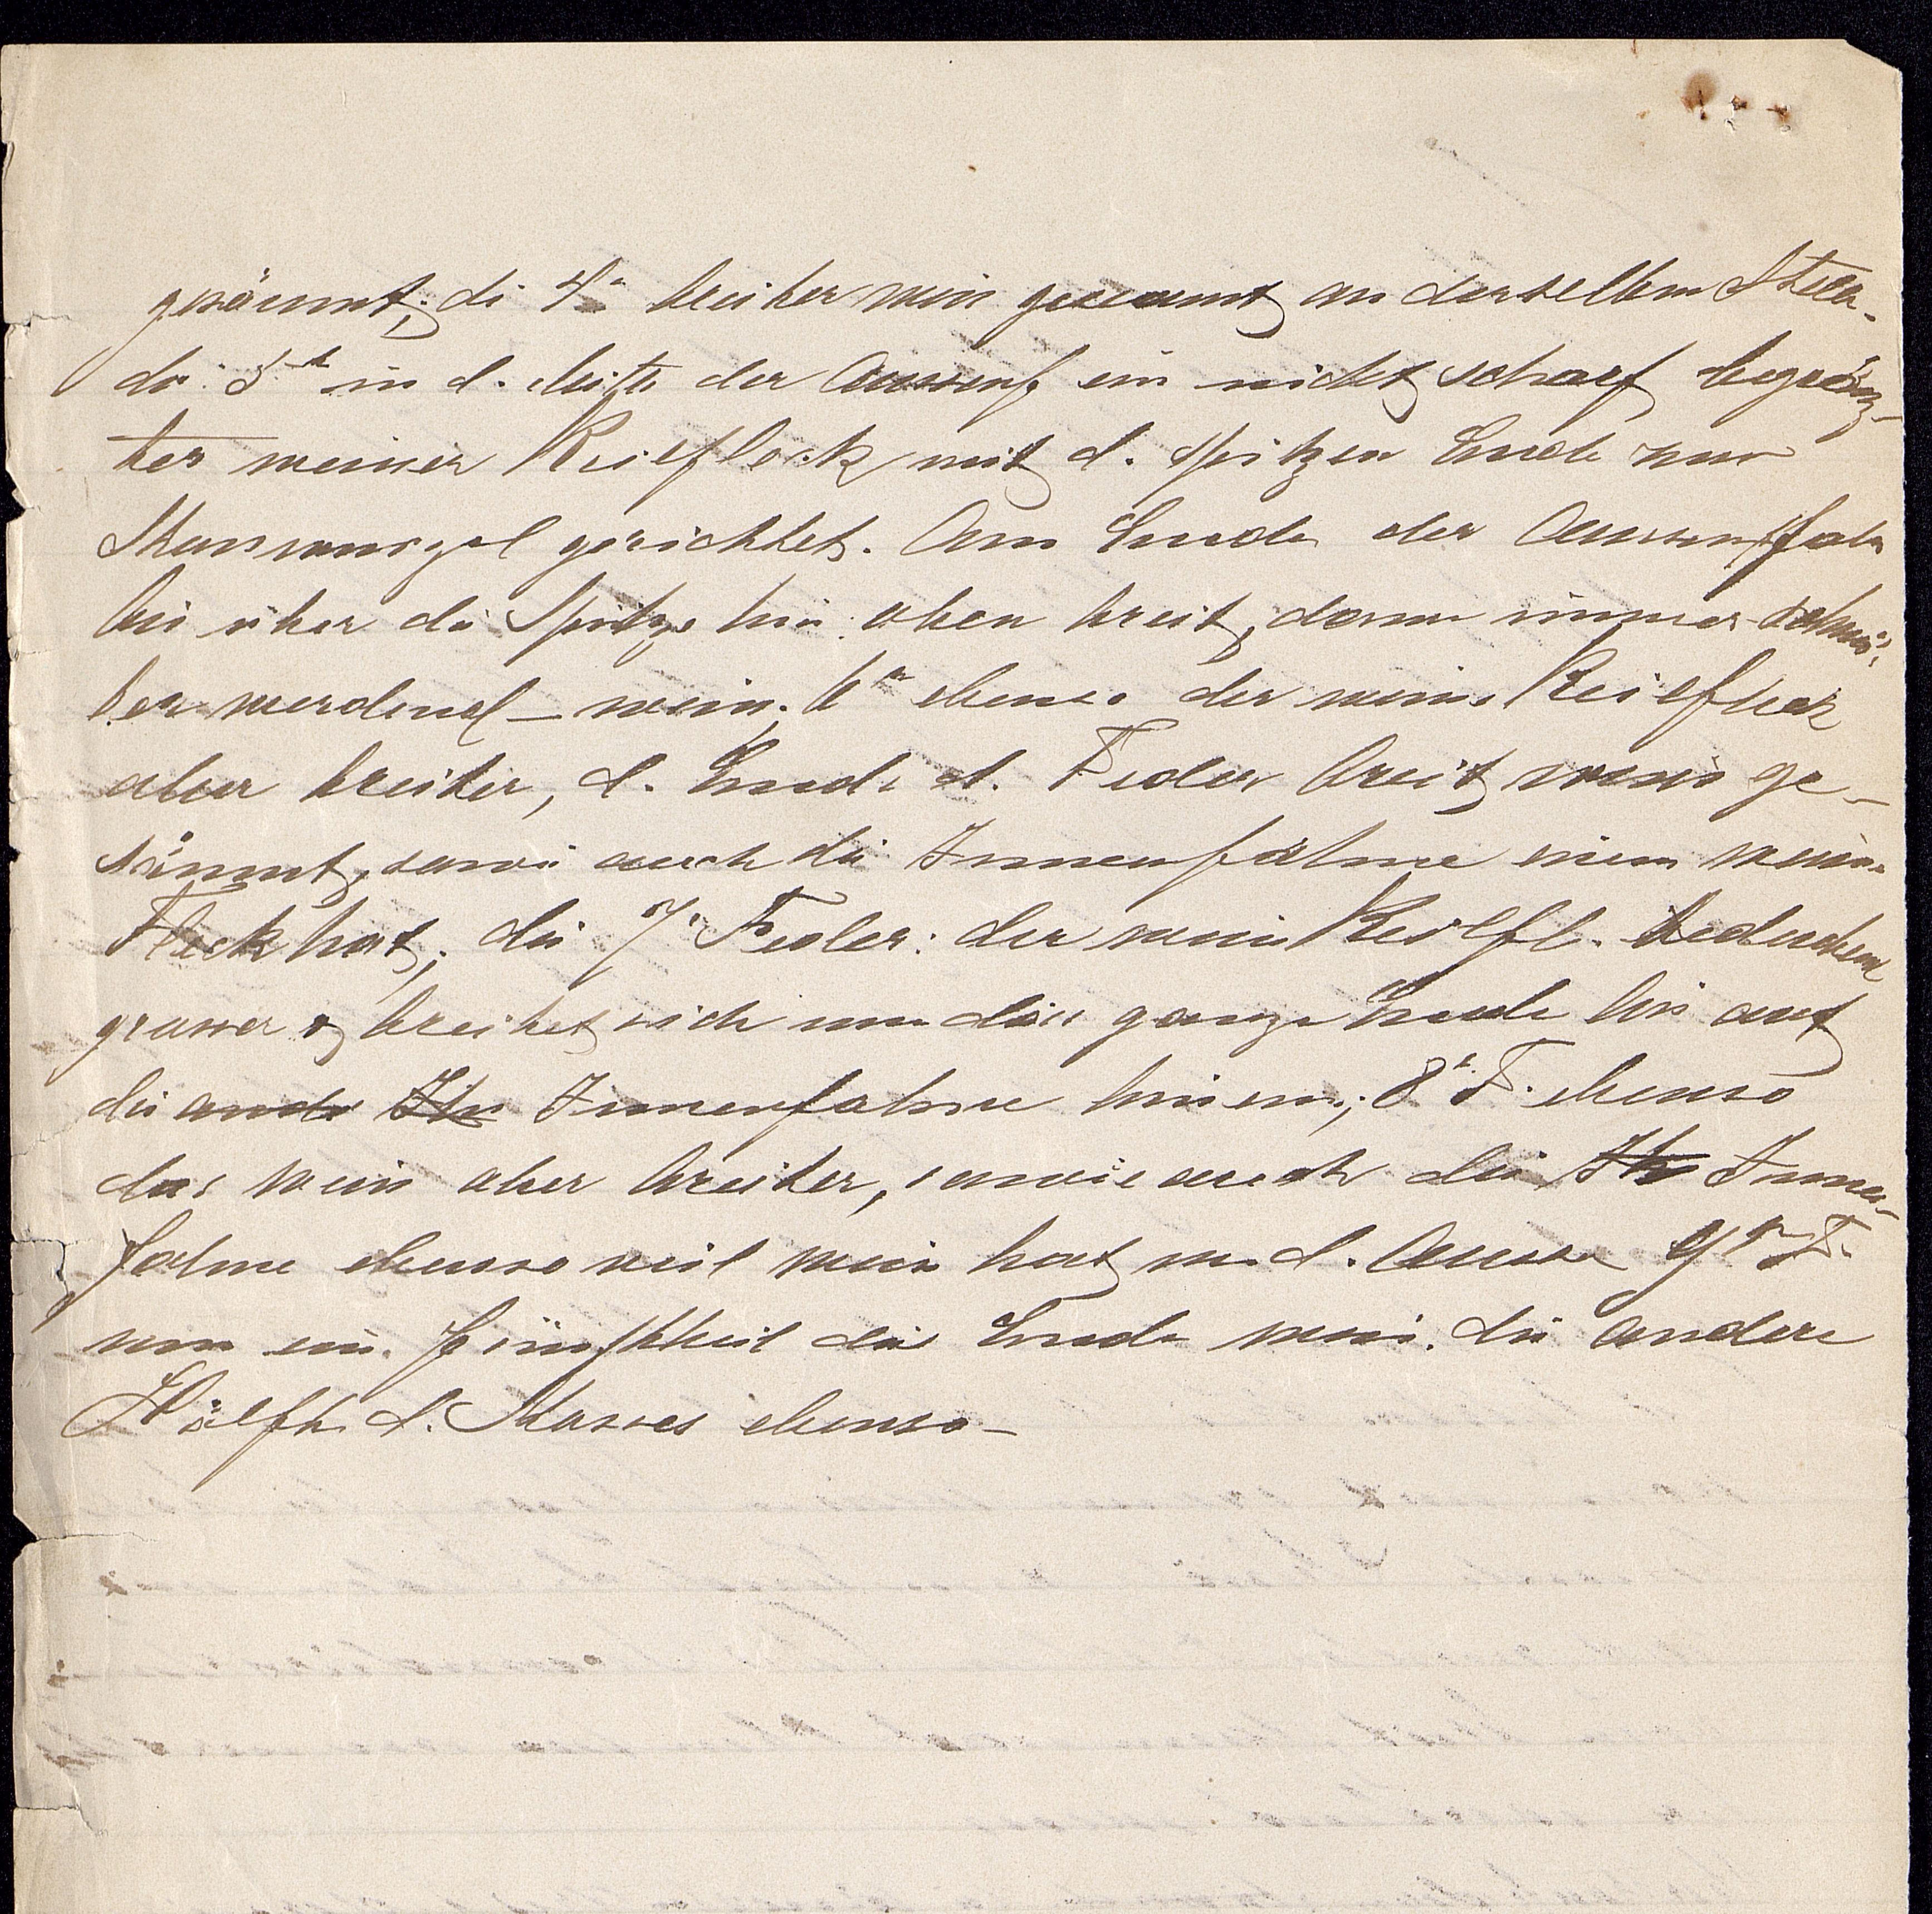 gesäumt; di 4te breiter weis gesäumt an derselben Stelle.
die 5te in d. Mitte der Aussenf ein nicht scharf begränz-
ter weisser Keilfleck mit d. spitzen Ende zur
gerichtet. Am Ende der Aussenfahn
bis über die Spitze hin: oben breit, dann immer schmä-
ler werdend – weis; 6te ebenso der weise Keilfleck
aber breiter, d. Ende d. Feder breit weis ge-
säumt, sowie auch die Innenfahne einen weiss
Fleck hat; die 7te Feder: der weis Keilfl. bedeutend
grosser u breitet sich um das ganze Ende bis auf
die ande Innenfahne hinein; 8te F. ebenso
das weis aber breiter, sowie auch die Innen-
fahne ebenso viel weis hat w. d. Aussere 9te F.
um ein fünftheil die Ende weis. die andere
Hälfte d. ebenso –